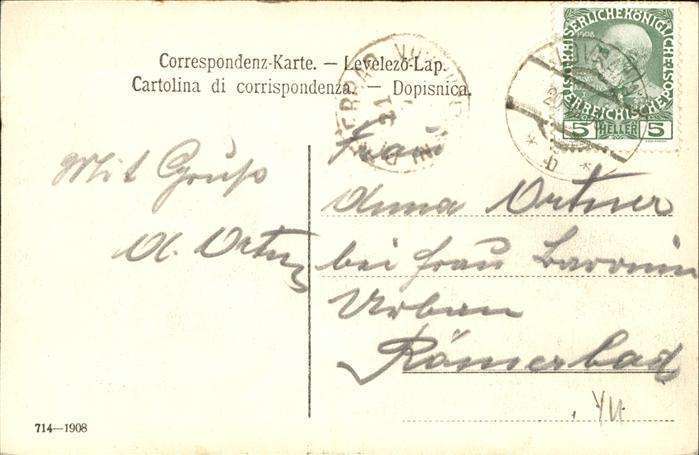 Correspondenz-Karte. — Levelező-Lap.
Cartolina di corrispondenza. — Dopisnica.
1908
KAISERLICHE KÖNIGLICHE
ÖSTERREICHISCHE POST
5 HELLER 5
Mit Gruß
A. Ortner
Frau
Anna Ortner
bei Frau Baronin
Urban
Römerbad
714—1908